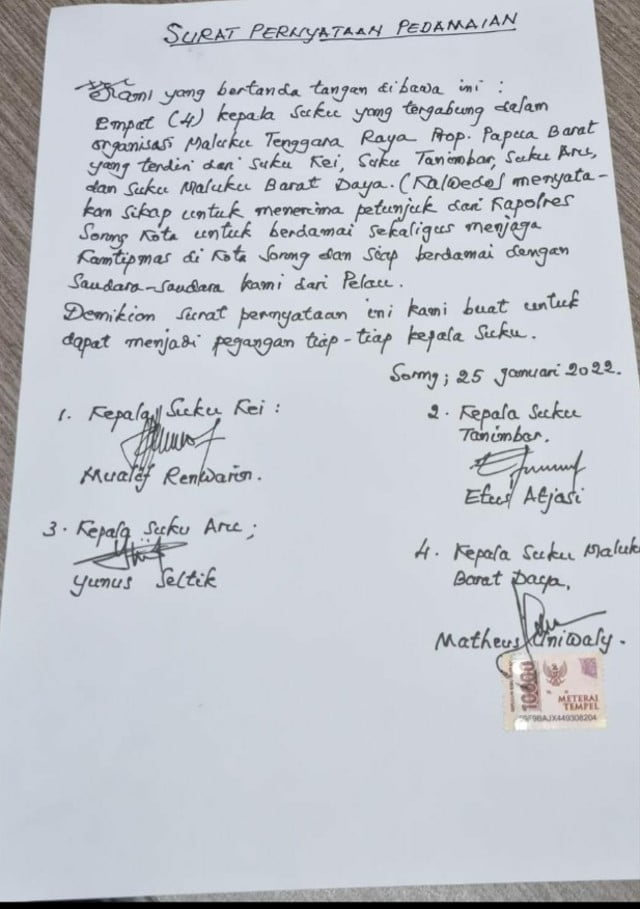 SURAT PERNYATAAN PEDAMAIAN
Kami yang bertanda tangan di bawa ini :
Empat (4) kepala Suku yang tergabung dalam
organisasi Maluku Tenggara Raya Prop. Papua Barat
yang terdiri dari Suku Kei, Suku Tanimbar, Suku Aru,
dan Suku Maluku Barat Daya. (Kalwedo) menyata-
kan sikap untuk menerima petunjuk dari Kapolres
Sorong Kota untuk berdamai sekaligus menjaga
Kamtipmas di Kota Sorong dan Siap berdamai dengan
Saudara-Saudara kami dari Pelau.
Demikian surat pernyataan ini kami buat untuk
dapat menjadi pegangan tiap-tiap kepala Suku.
Sorong; 25 Januari 2022.
1. Kepala Suku Kei :
Renwarin.
2. Kepala Suku
Tanimbar.
Atjasi
3. Kepala Suku Aru ;
Yunus Seltik
4. Kepala Suku Maluku
Barat Daya,
Matheus Uniwaly.
10000
METERAI
TEMPEL